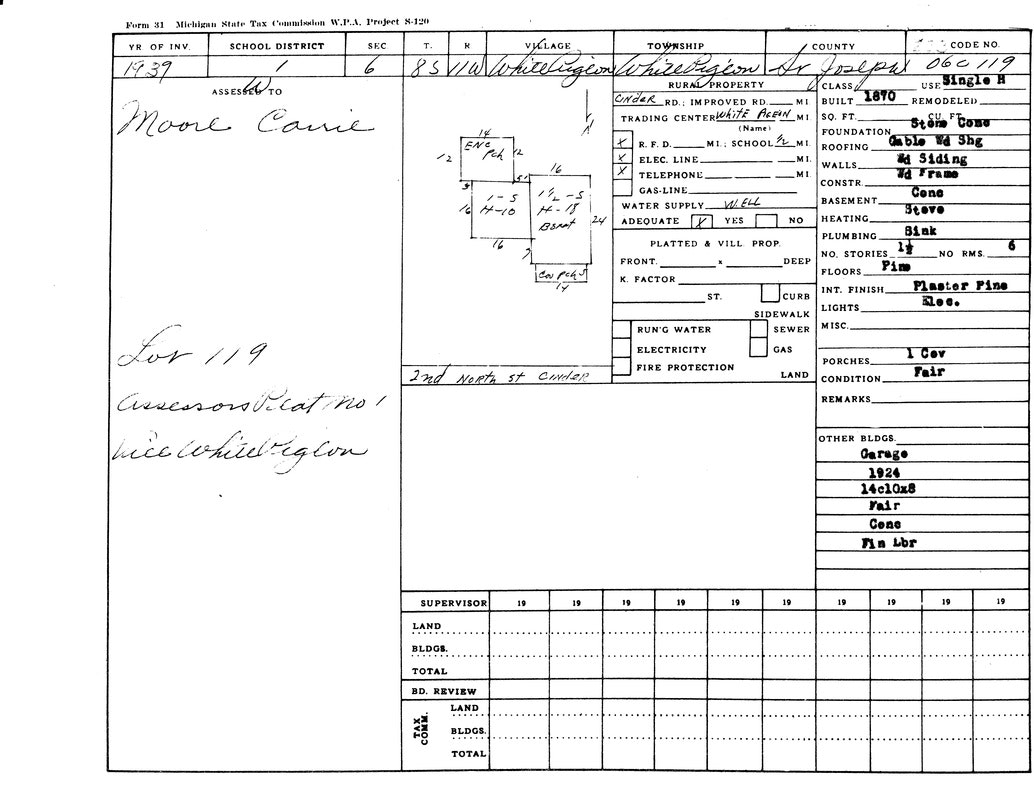 Form 31 Michigan State Tax Commission W.P.A. Project S-120
YR OF INV. SCHOOL DISTRICT SEC. T. R VILLAGE TOWNSHIP COUNTY CODE NO.
1939 1 6 8S 11W White Pigeon White Pigeon St Joseph 06C 119
ASSESSED TO
W
Moore Carrie
Lot 119
Assessors Plat No 1
Vill White Pigeon
14
ENC Pch
12 12
3 5'
16
1-S
H-10
16
16
1½-S
H-18
Bsmt
24
16
7
Cov Pch 5
14
2nd North St Cinder
RURAL PROPERTY
Cinder RD.; IMPROVED RD. MI.
TRADING CENTER White Pigeon MI.
(Name)
X R. F. D. MI.; SCHOOL ½ MI.
X ELEC. LINE MI.
X TELEPHONE MI.
GAS-LINE
WATER SUPPLY Well
ADEQUATE X YES NO
PLATTED & VILL PROP.
FRONT. x DEEP
K. FACTOR
ST. CURB
SIDEWALK
RUN'G WATER SEWER
ELECTRICITY GAS
FIRE PROTECTION LAND
CLASS USE Single H
BUILT 1870 REMODELED
SQ. FT. CU. FT.
FOUNDATION Stone Conc
ROOFING Gable Wd Shg
WALLS Wd Siding
CONSTR. Wd Frame
BASEMENT Conc
HEATING Stove
PLUMBING Sink
NO. STORIES 1½ NO RMS. 6
FLOORS Pine
INT. FINISH Plaster Pine
LIGHTS Elec.
MISC.
PORCHES 1 Cov
CONDITION Fair
REMARKS
OTHER BLDGS.
Garage
1924
14c10x8
Fair
Conc
Fin Lbr
SUPERVISOR 19 19 19 19 19 19 19 19 19 19
LAND
BLDGS.
TOTAL
BD. REVIEW
TAX COMM.
LAND
BLDGS.
TOTAL